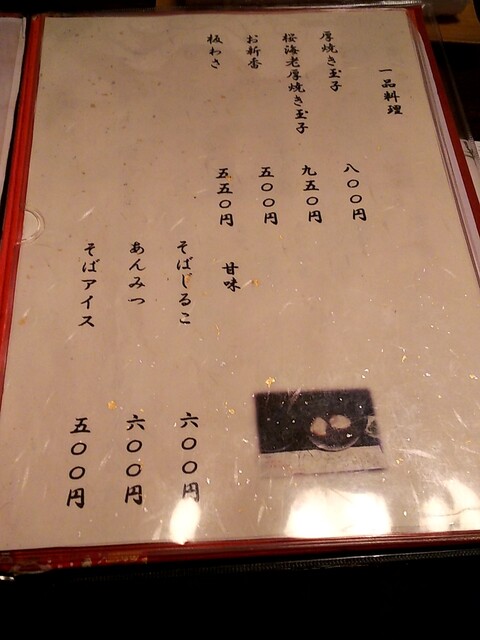 一品料理
厚焼き玉子 八〇〇円
桜海老厚焼き玉子 九五〇円
お新香 五〇〇円
板わさ 五五〇円
甘味
そばじるこ 六〇〇円
あんみつ 六〇〇円
そばアイス 五〇〇円